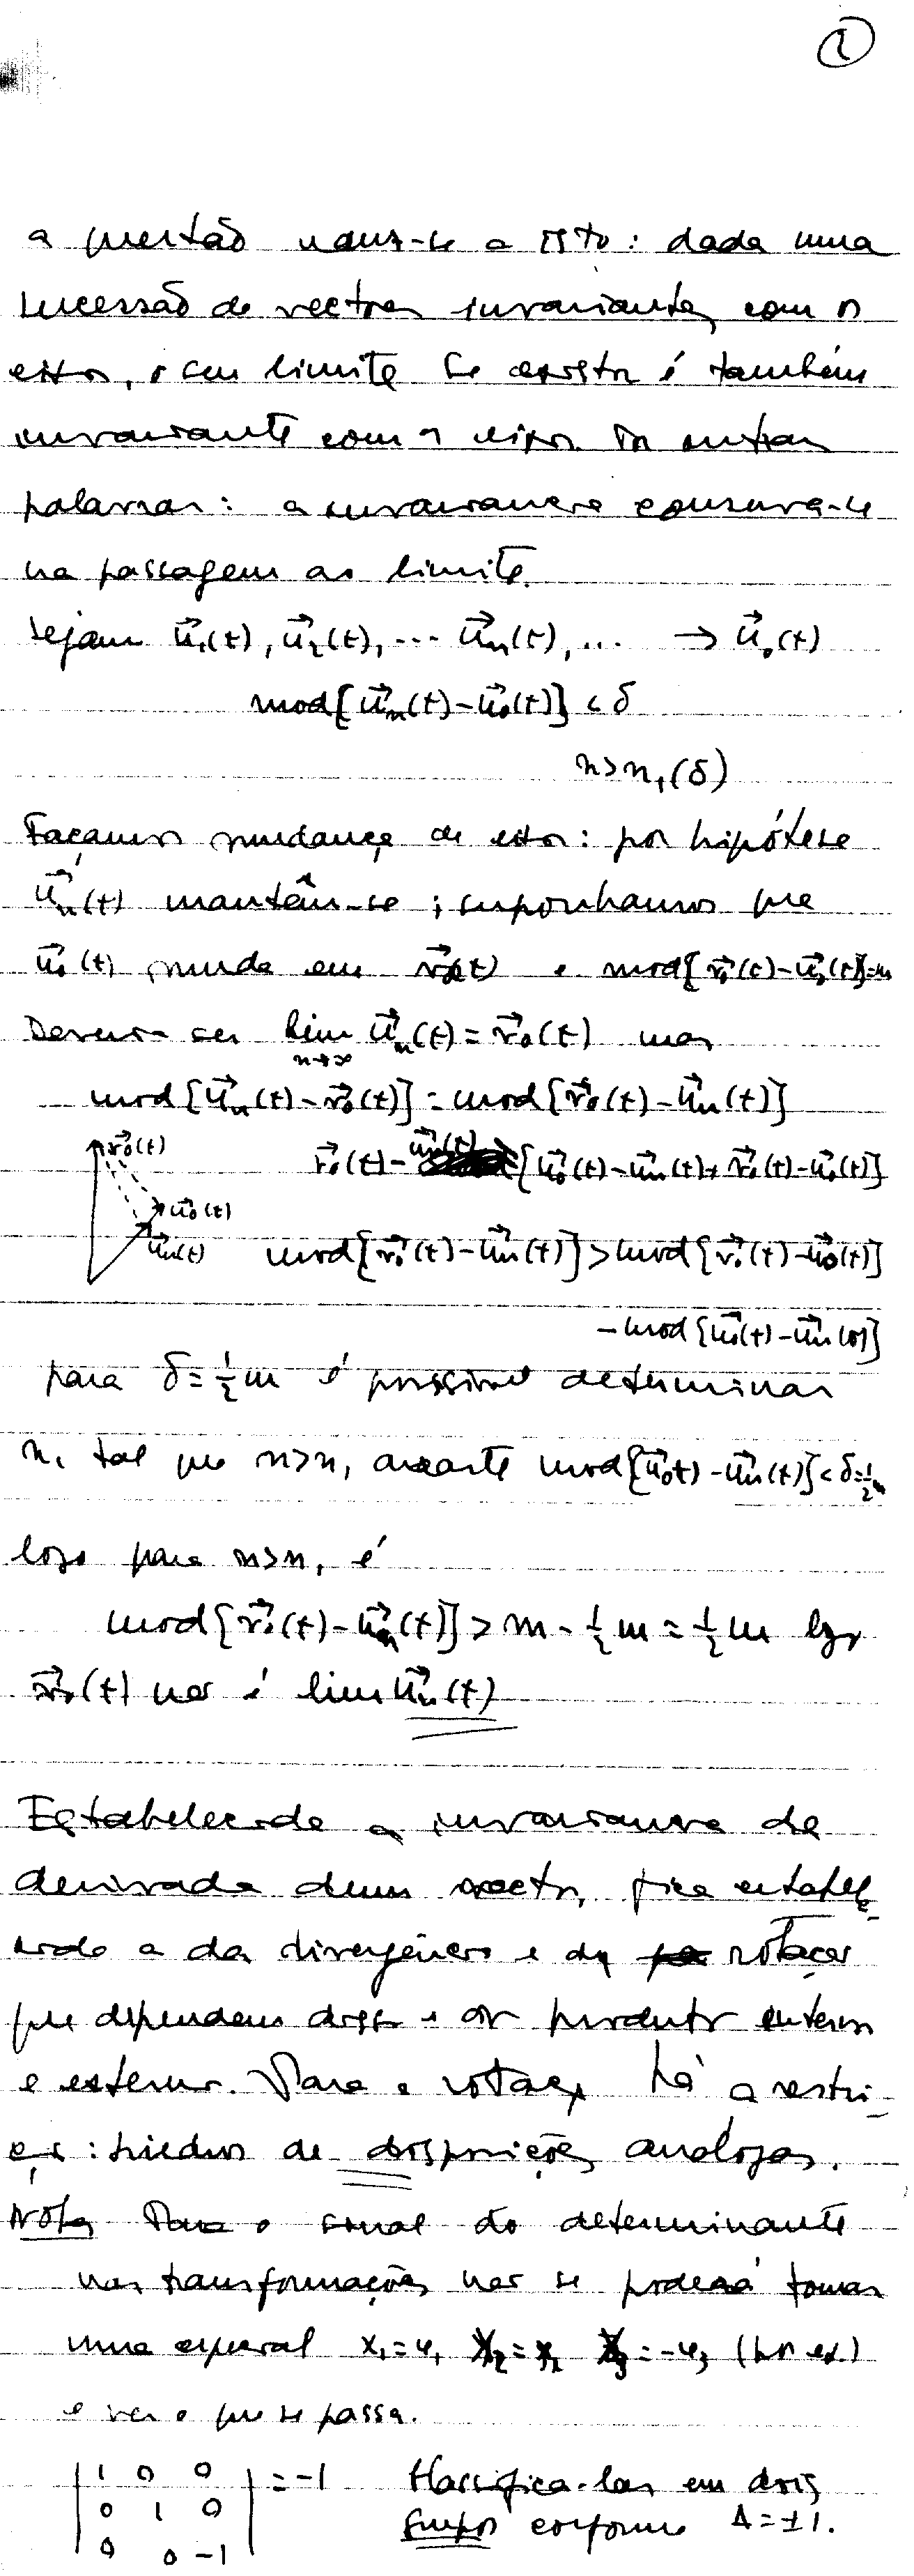 1
a questão reduz-se a isto: dada uma
sucessão de vectores invariantes com os
eixos, o seu limite se existir é também
invariante com os eixos. Por outras
palavras: a invariancia conserva-se
na passagem ao limite.
Sejam u⃗₁(t), u⃗₂(t), ... u⃗ₙ(t), ... → u⃗₀(t)
mod[u⃗ₙ(t)-u⃗₀(t)] < δ
n>n₁(δ)
Façamos mudança de eixos: por hipótese
u⃗ₙ(t) mantêm-se; suponhamos que
u⃗₀(t) muda em v⃗₀(t) e mod[v⃗₀(t)-u⃗₀(t)]=m
Deveria ser lim n→∞ u⃗ₙ(t) = v⃗₀(t) mas
mod[u⃗ₙ(t)-v⃗₀(t)] = mod[v⃗₀(t)-u⃗ₙ(t)]
v⃗₀(t)
v⃗₀(t)-u⃗ₙ(t)=[u⃗₀(t)-u⃗ₙ(t)+v⃗₀(t)-u⃗₀(t)]
u⃗₀(t)
u⃗ₙ(t)
mod[v⃗₀(t)-u⃗ₙ(t)] > mod[v⃗₀(t)-u⃗₀(t)]
-mod[u⃗₀(t)-u⃗ₙ(t)]
para δ=½m é possivel determinar
n₁ tal que n>n₁ acarrete mod[u⃗₀(t)-u⃗ₙ(t)]<δ=½m
logo para n>n₁ é
mod[v⃗₀(t)-u⃗ₙ(t)] > m - ½m = ½m logo
v⃗₀(t) não é lim u⃗ₙ(t)
Estabelecida a invariancia da
derivada dum vector, fica estabele-
cida a da divergência e da rotação
que dependem dessa e do produto interno
e externo. Para a rotação há a restri-
ção: triedros de disposições analogas.
Nota Para o sinal do determinante
nas transformações não se poderá tomar
uma especial x₁=y₁ x₂=y₂ x₃=-y₃ (por ex.)
e ver o que se passa.
|1 0 0| = -1 Classifica-las em dois
|0 1 0| grupos conforme Δ=±1.
|0 0 -1|